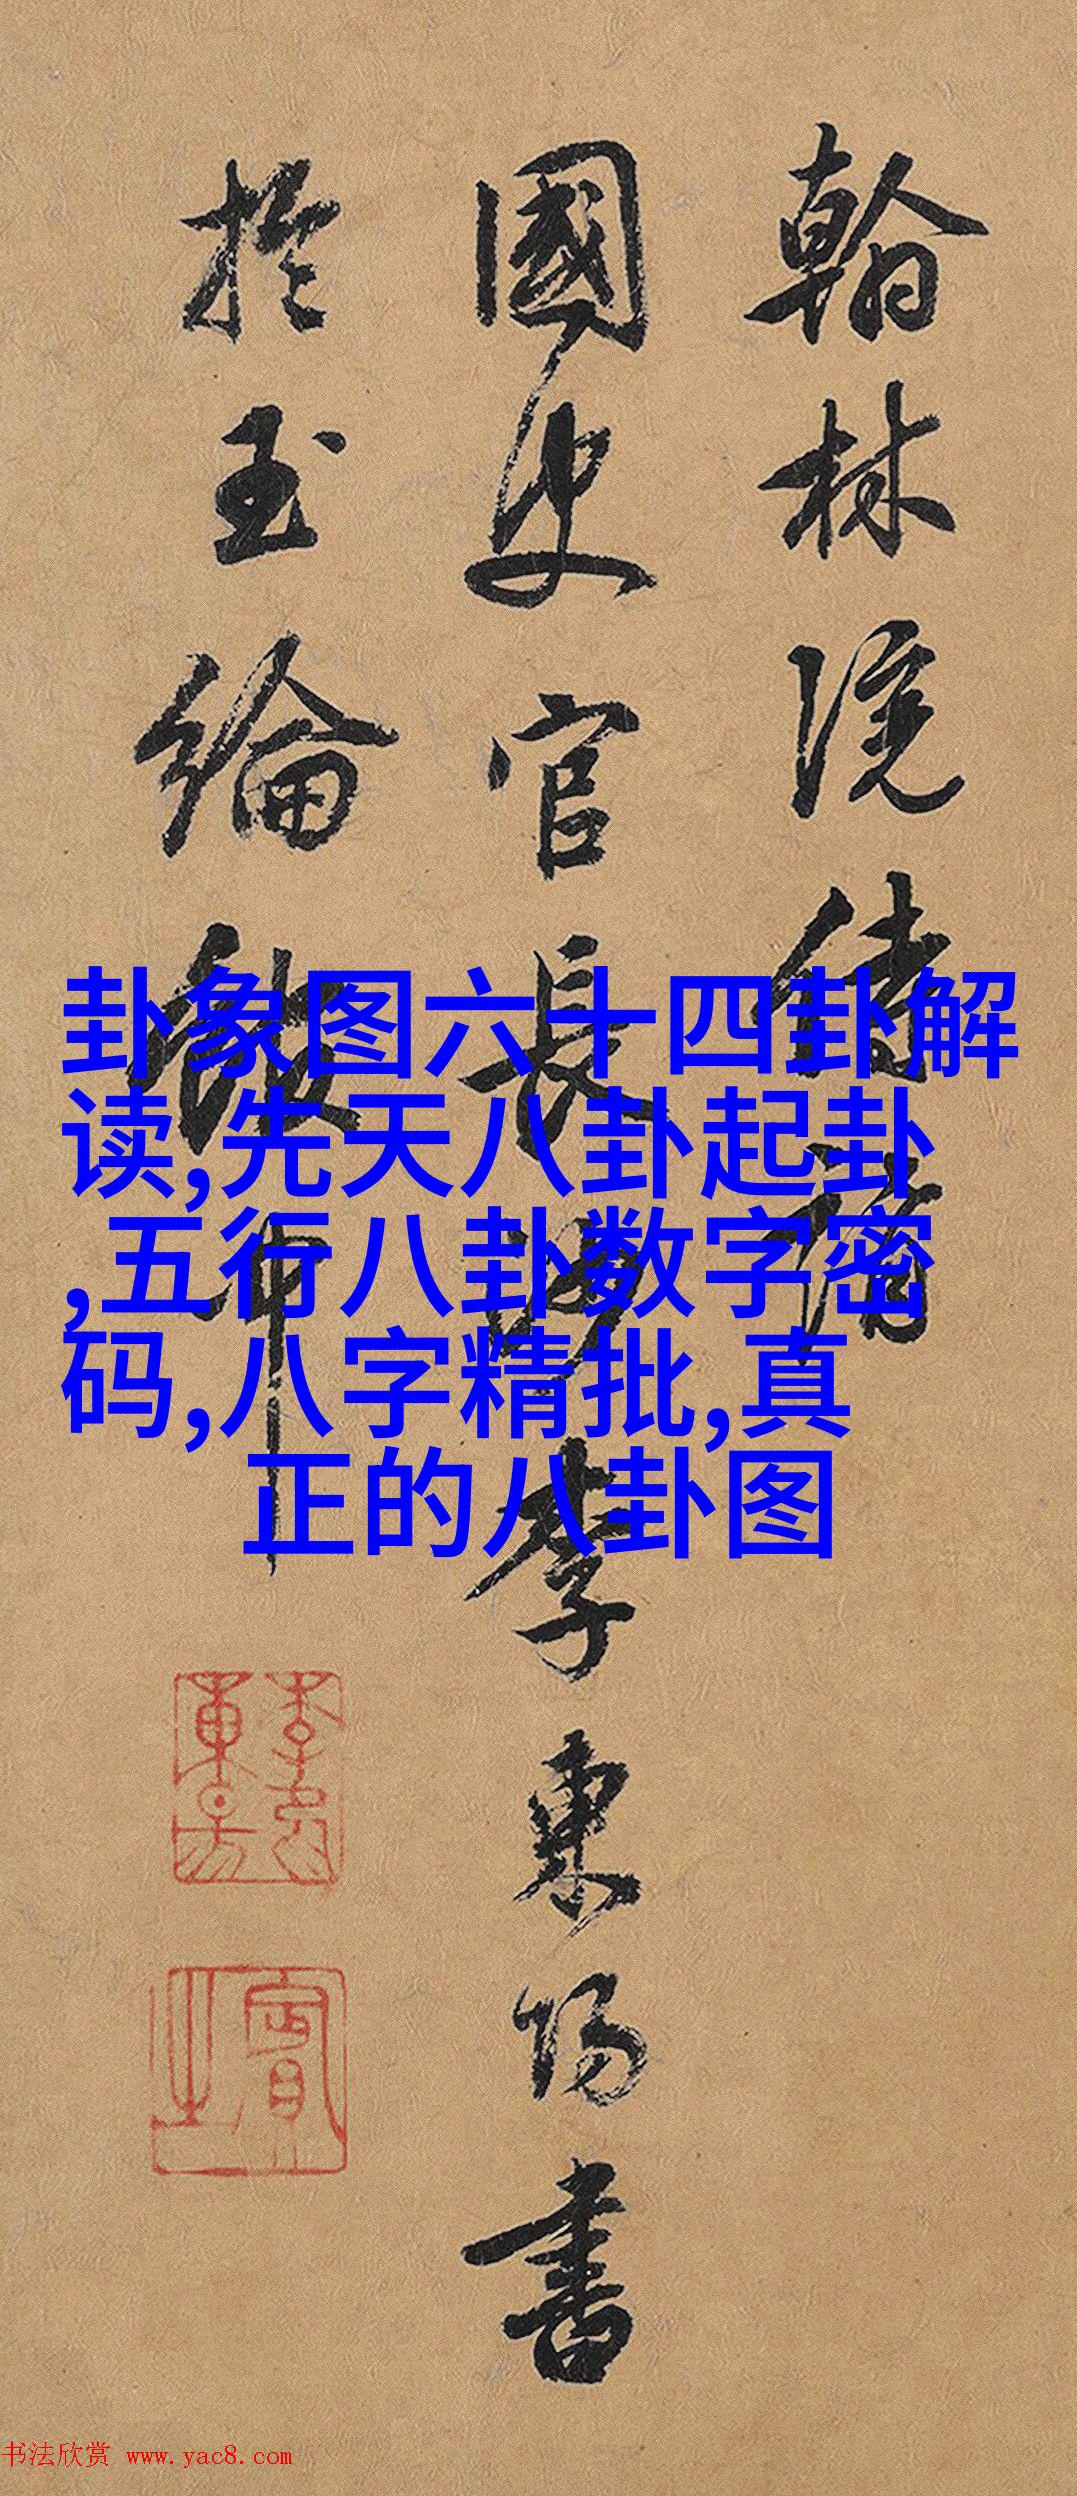 翰林院侍講
國史官長沙李東陽書
於玉綸中
卦象图六十四卦解
读,先天八卦起卦
,五行八卦数字密
码,八字精批,真
正的八卦图
賓之
书法欣赏 www.yac8.com